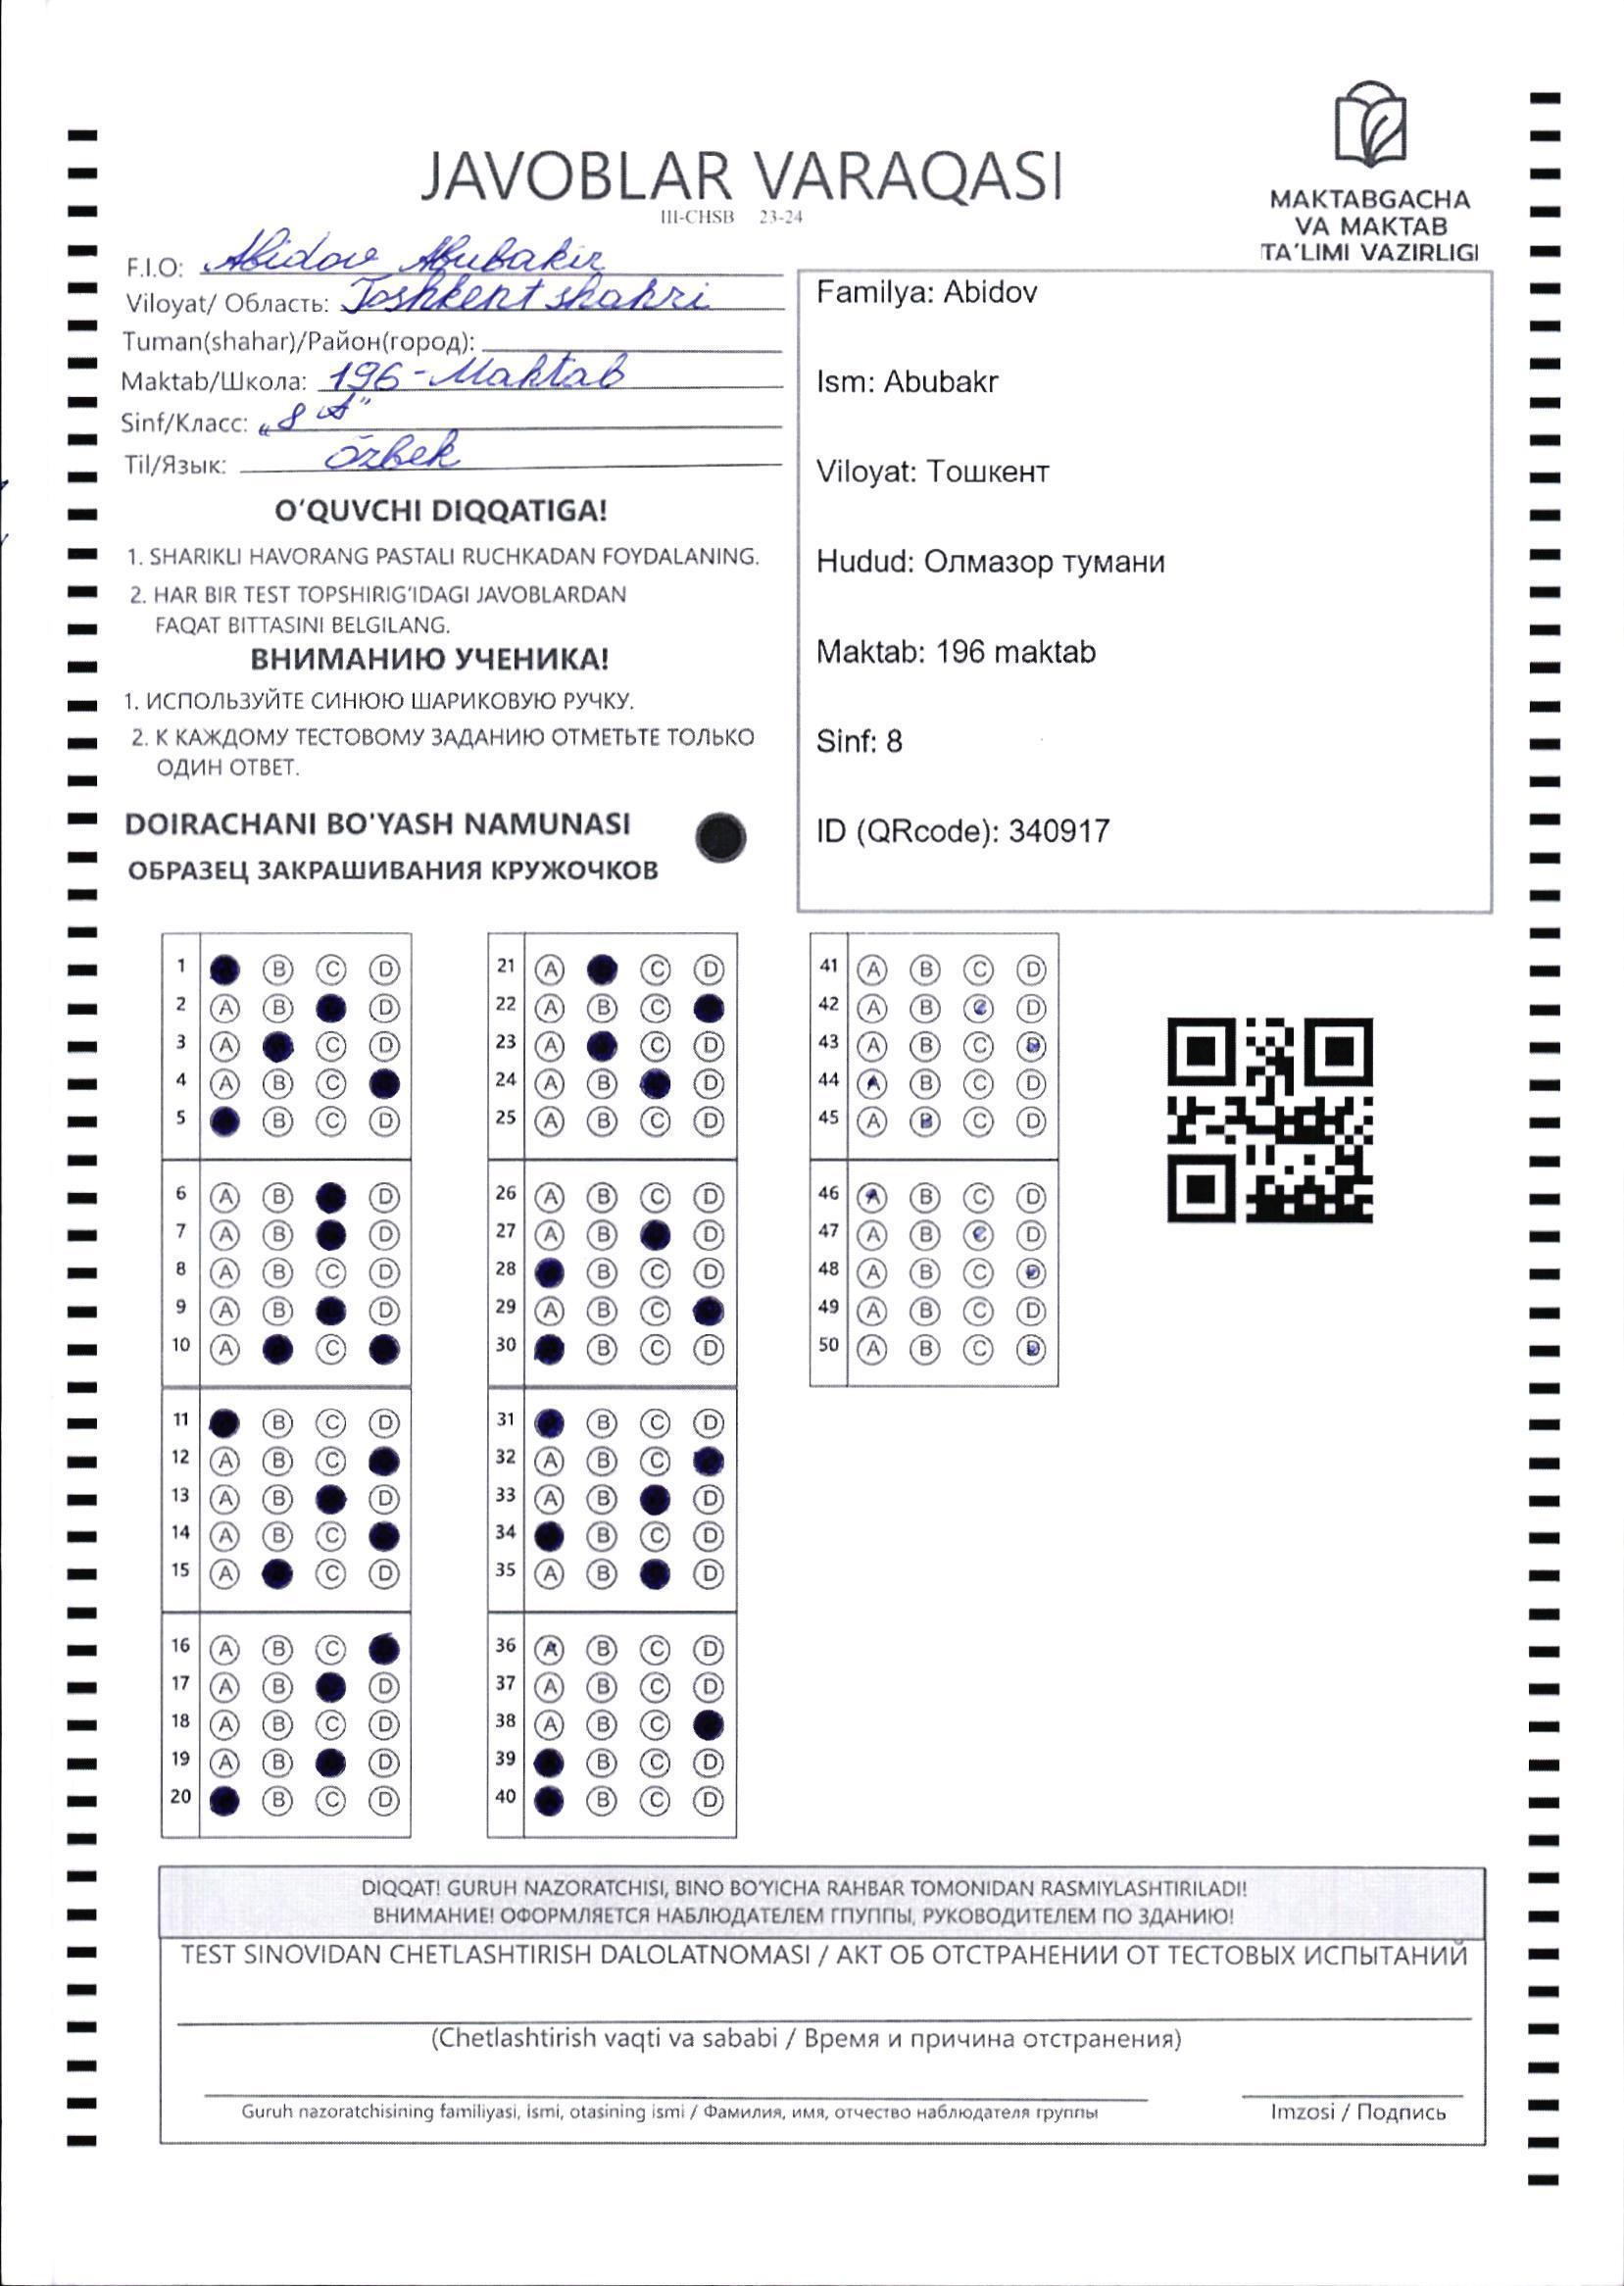 JAVOBLAR VARAQASI
III-CHSB 23-24
MAKTABGACHA
VA MAKTAB
TA'LIMI VAZIRLIGI
F.I.O: Abidov Abubakir
Viloyat/ Область: Toshkent shahri
Tuman(shahar)/Район(город):
Maktab/Школа: 196-Maktab
Sinf/Класс: „8 A"
Til/Язык: Özbek
O'QUVCHI DIQQATIGA!
1. SHARIKLI HAVORANG PASTALI RUCHKADAN FOYDALANING.
2. HAR BIR TEST TOPSHIRIG'IDAGI JAVOBLARDAN
FAQAT BITTASINI BELGILANG.
ВНИМАНИЮ УЧЕНИКА!
1. ИСПОЛЬЗУЙТЕ СИНЮЮ ШАРИКОВУЮ РУЧКУ.
2. К КАЖДОМУ ТЕСТОВОМУ ЗАДАНИЮ ОТМЕТЬТЕ ТОЛЬКО
ОДИН ОТВЕТ.
DOIRACHANI BO'YASH NAMUNASI
ОБРАЗЕЦ ЗАКРАШИВАНИЯ КРУЖОЧКОВ
Familya: Abidov
Ism: Abubakr
Viloyat: Тошкент
Hudud: Олмазор тумани
Maktab: 196 maktab
Sinf: 8
ID (QRcode): 340917
1 B C D
2 A B D
3 A C D
4 A B C
5 B C D
6 A B D
7 A B D
8 A B C D
9 A B D
10 A C
11 B C D
12 A B C
13 A B D
14 A B C
15 A C D
16 A B C
17 A B D
18 A B C D
19 A B D
20 B C D
21 A C D
22 A B C
23 A C D
24 A B D
25 A B C D
26 A B C D
27 A B D
28 B C D
29 A B C
30 B C D
31 B C D
32 A B C
33 A B D
34 B C D
35 A B D
36 A B C D
37 A B C D
38 A B C
39 B C D
40 B C D
41 A B C D
42 A B C D
43 A B C D
44 A B C D
45 A B C D
46 A B C D
47 A B C D
48 A B C D
49 A B C D
50 A B C D
DIQQAT! GURUH NAZORATCHISI, BINO BO'YICHA RAHBAR TOMONIDAN RASMIYLASHTIRILADI!
ВНИМАНИЕ! ОФОРМЛЯЕТСЯ НАБЛЮДАТЕЛЕМ ГПУППЫ, РУКОВОДИТЕЛЕМ ПО ЗДАНИЮ!
TEST SINOVIDAN CHETLASHTIRISH DALOLATNOMASI / АКТ ОБ ОТСТРАНЕНИИ ОТ ТЕСТОВЫХ ИСПЫТАНИЙ
(Chetlashtirish vaqti va sababi / Время и причина отстранения)
Guruh nazoratchisining familiyasi, ismi, otasining ismi / Фамилия, имя, отчество наблюдателя группы
Imzosi / Подпись